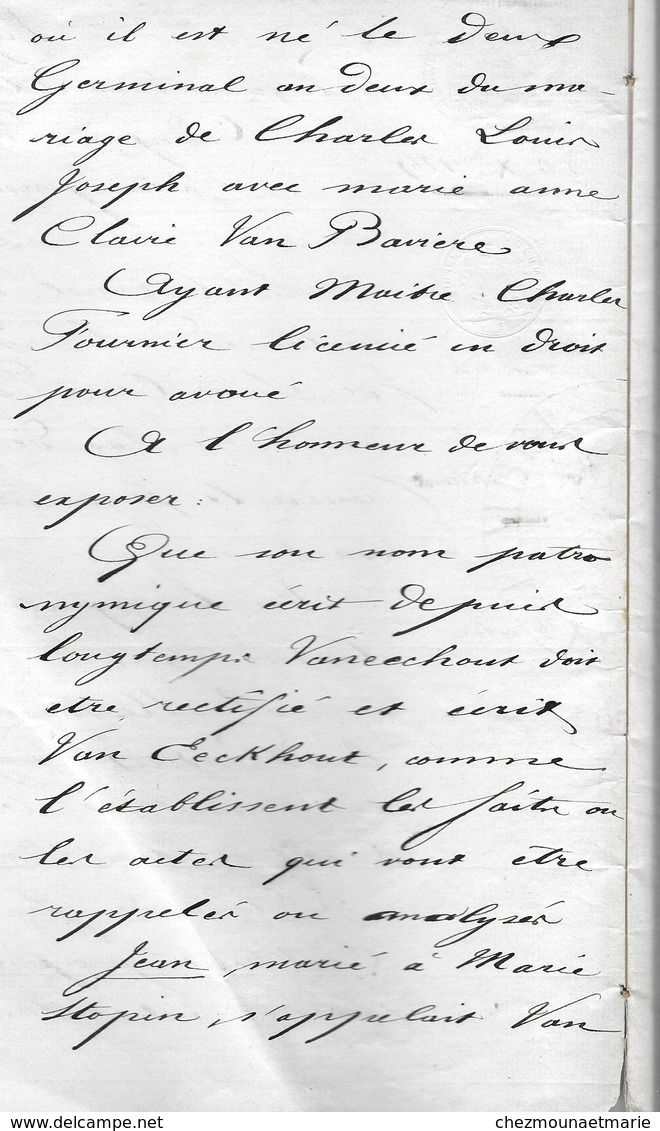 où il est né le deux
Germinal an deux du ma-
riage de Charles Louis
Joseph avec marie anne
Claire Van Baviere
Ayant Maitre Charles
Fournier licencié en droit
pour avoué
A l'honneur de vous
exposer :
Que son nom patro
nymique écrit depuis
longtemps Vaneechout doit
etre rectifié et écrit
Van Eeckhout, comme
l'établissent les faits ou
les actes qui vont etre
rappelés ou analysés
Jean, marié à Marie
Stopin, s'appelait Van
delcampe.net
chezmounaetmarie